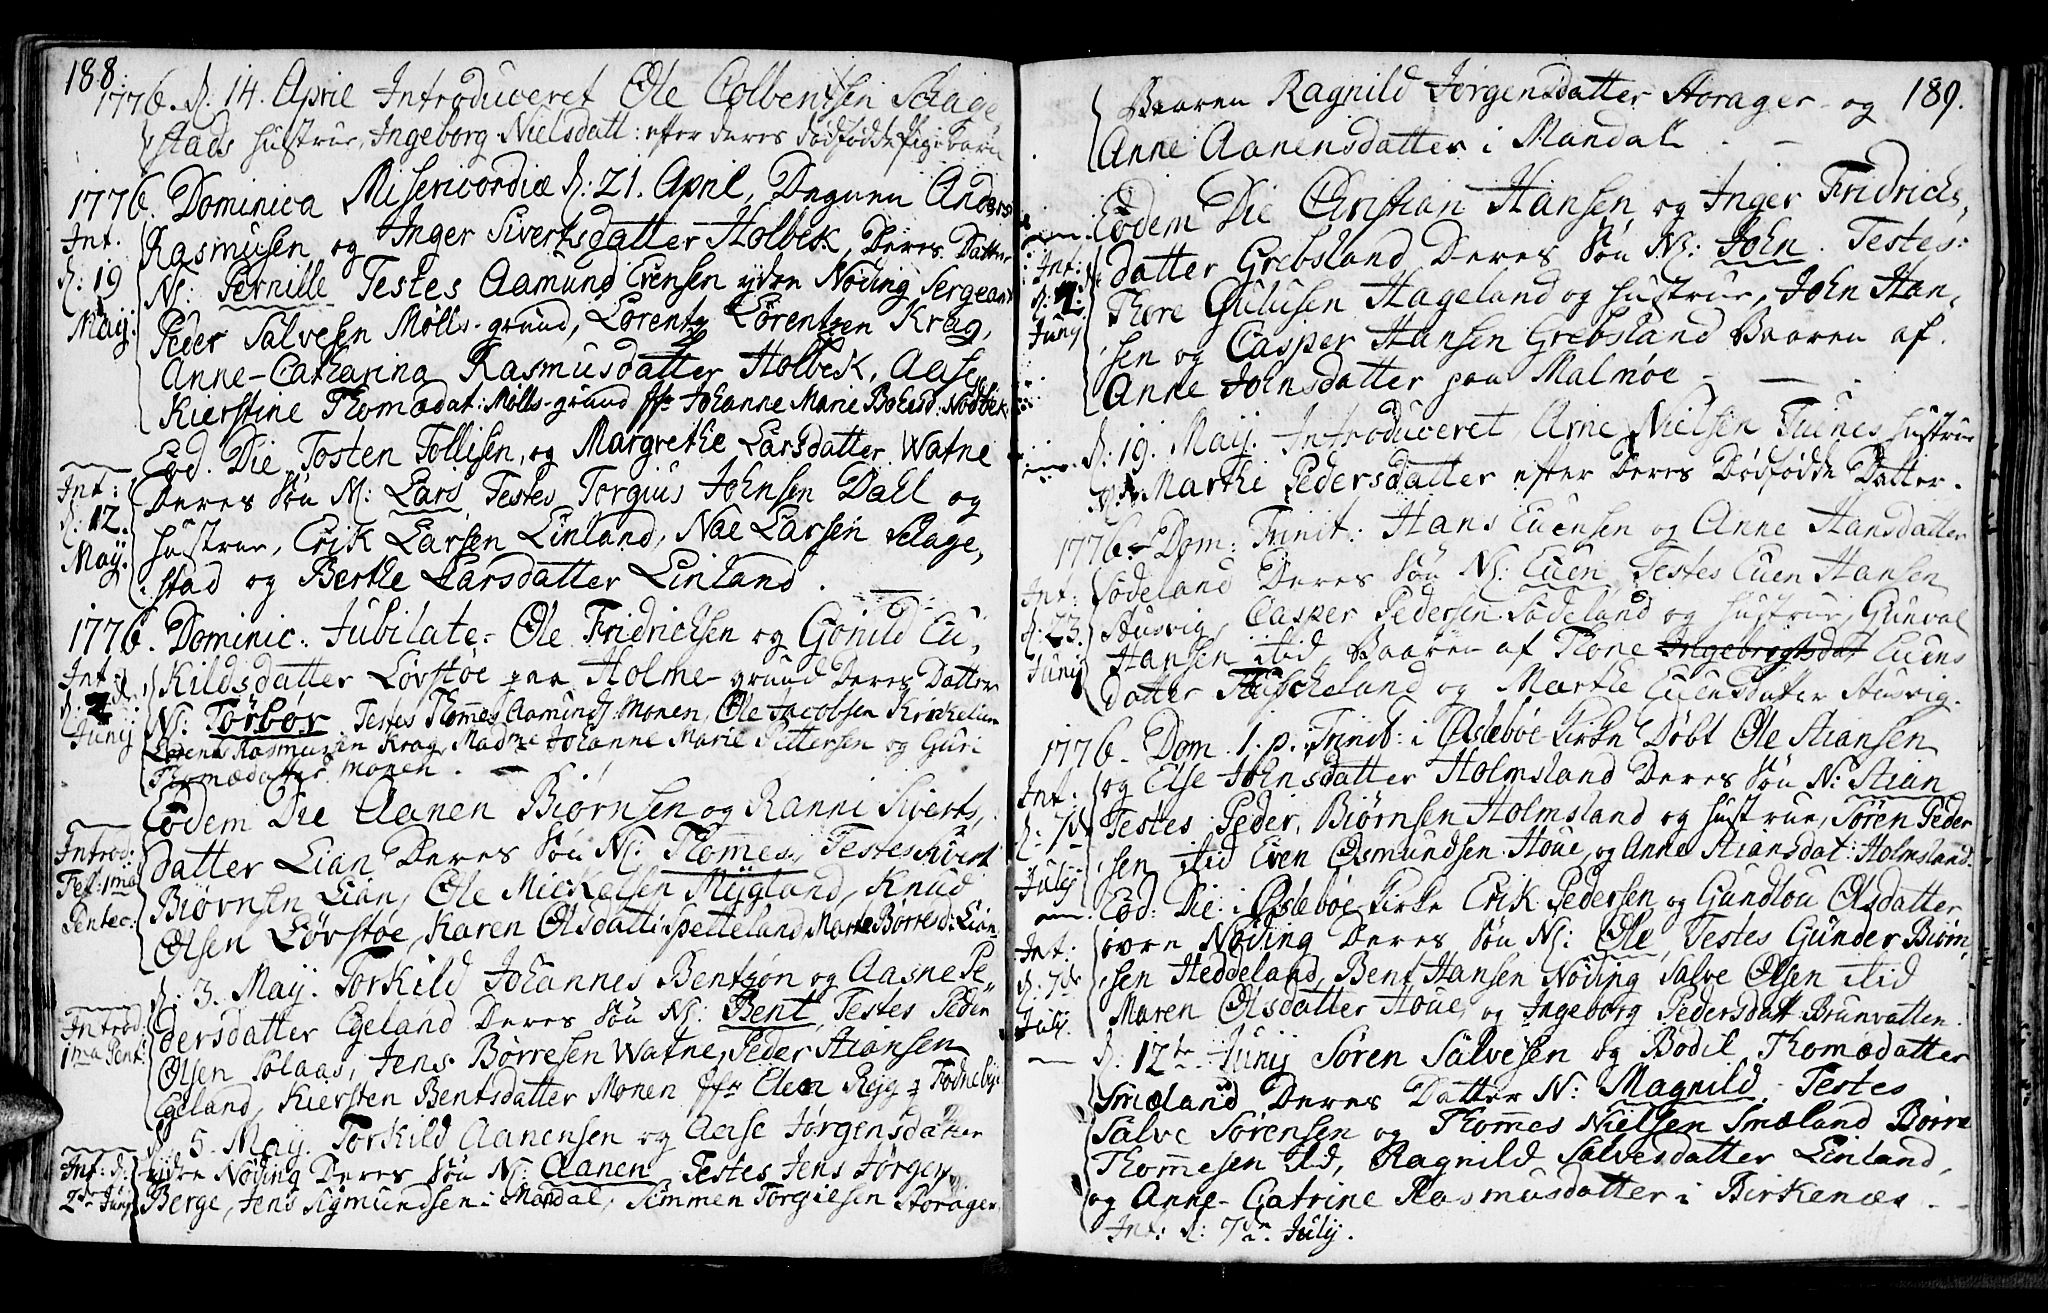 188.
1776. d: 14. April Introduceret Ole Colbentsen Schage
stads hustrue, Ingeborg Nielsdatt: efter deres dødfødde Pige Barn
1776. Dominica Misericordiæ d: 21. April, Degnen Anders
Int. Rasmusen og Inger Sivertsdatter Holbek, Deres Datter
d: 19 N: Pernille Testes Aamund Evensen ydre Nöding Sergeant
Maij: Peder Salvesen Mölls-grund, Lorentz Lorentzen Krag,
Anne-Catharina Rasmusdatter Holbek, Aase
Kierstine Thomædat: Mölls-grund Jfr Johanne Marie
Eod. Die Tosten Tollisen, og Margrethe Larsdatter Watne
Int: Deres Sön N: Lars Testes Torgius Johnsen Dahl og
d: 12. hustrue, Erik Larsen Linland, Nae Larsen Schage,
Maij. stad og Berthe Larsdatter Linland.
1776. Dominic: Jubilate. Ole Fridrichsen og Gönild Eu,
Int: d. Kildsdatter Lövstöe paa Holme-grund Deres Datter
d. 2. N: Törbör Testes Thomes Aamunds: Monen, Ole Jacobsen
Junij Lorents Rasmussen Krag, Madme Johanne Marie Pettersen og Guri
Thomædatter Monen.
Eodem Die Aanen Biörnsen og Ranni Siverts,
Introd: datter Lian Deres Sön N: Thomes, Testes Sivert
Fer: 1ma Biörnsen Lian, Ole Mickelsen Mijgland, Knud
Pentec: Olsen Lövstöe, Karen Olsdatt: Spetteland Marte Börresd: Lian
d. 3. Maij. Torkild Johannes Bentzön og Aasne Pe,
Introd. dersdatter Egeland Deres Sön N: Bent, Testes Peder
1ma Pent: Olsen Solaas, Jens Börresen Watne, Peder Stiansen
Egeland, Kiersten Bentsdatter Monen Jfr Elen
d. 5. Maij. Torkild Aanensen og Aase Jörgensdatter
Int: d: ydre Nöding Deres Sön N: Aanen Testes Jens Jörgen
2de Junij Berge, Jens Sigmundsen i Mandal, Simmen Torgiesen Storager
189.
Baaren Ragnild Jörgensdatter Storager og
Anne Aanensdatter i Mandal
Eodem Die Christian Hansen og Inger Fridrichs,
Int: datter Grebsland Deres Sön N: John. Testes:
d: 2. Thore Gulusen Hageland og hustrue, John Han,
Junij sen og Casper Hansen Grebsland Baaren af.
Anne Johnsdatter paa Malmöe
d: 19. Maij. Introduceret Arne Nielsen Tuenes hustrue
Marthe Pedersdatter efter Deres Dödfödde Datter.
1776. Dom: Trinit: Hans Euensen og Anne Hansdatter
Int: Södeland Deres Sön N: Euen Testes Euen Hansen
d: 23. Husvig, Casper Pedersen Södeland og hustrue, Gunval
Junij Hansen ibid, Baaren af Thone Ingebrogtsdat Euens
datter Huscheland og Marthe Euensdatter Husvig.
1776. Dom. 1. p. Trinit: i Öslebøe Kirke Döbt Ole Stiansen
Int: og Else Johnsdatter Holmsland Deres Sön N: Stian
d: 7de Testes Peder Biörnsen Holmsland og hustrue, Sören Peder
Julij sen ibid Even Osmundsen Houe, og Anne Stiansdat: Holmsland.
Eod: Die i Öslebøe Kirke Erik Pedersen og Gundlou Olsdatter
Int: övre Nöding Deres Sön N: Ole, Testes Gunder Biörn,
d. 7de sen Heddeland, Bent Hansen Nöding Salve Olsen ibid
Julij. Maren Olsdatter Houe, og Ingeborg Pedersdatt Brunvatten.
d. 12te Junij Sören Salvesen og Bodil Thomædatter
Smæland Deres Datter N: Magnild. Testes
Salve Sörensen og Thommes Nielsen Smæland Börre
Thommesen ibd, Ragnild Salvesdatter Linland,
og Anne-Catrine Rasmusdatter i Birkenæs
Int: d: 7de Julij.